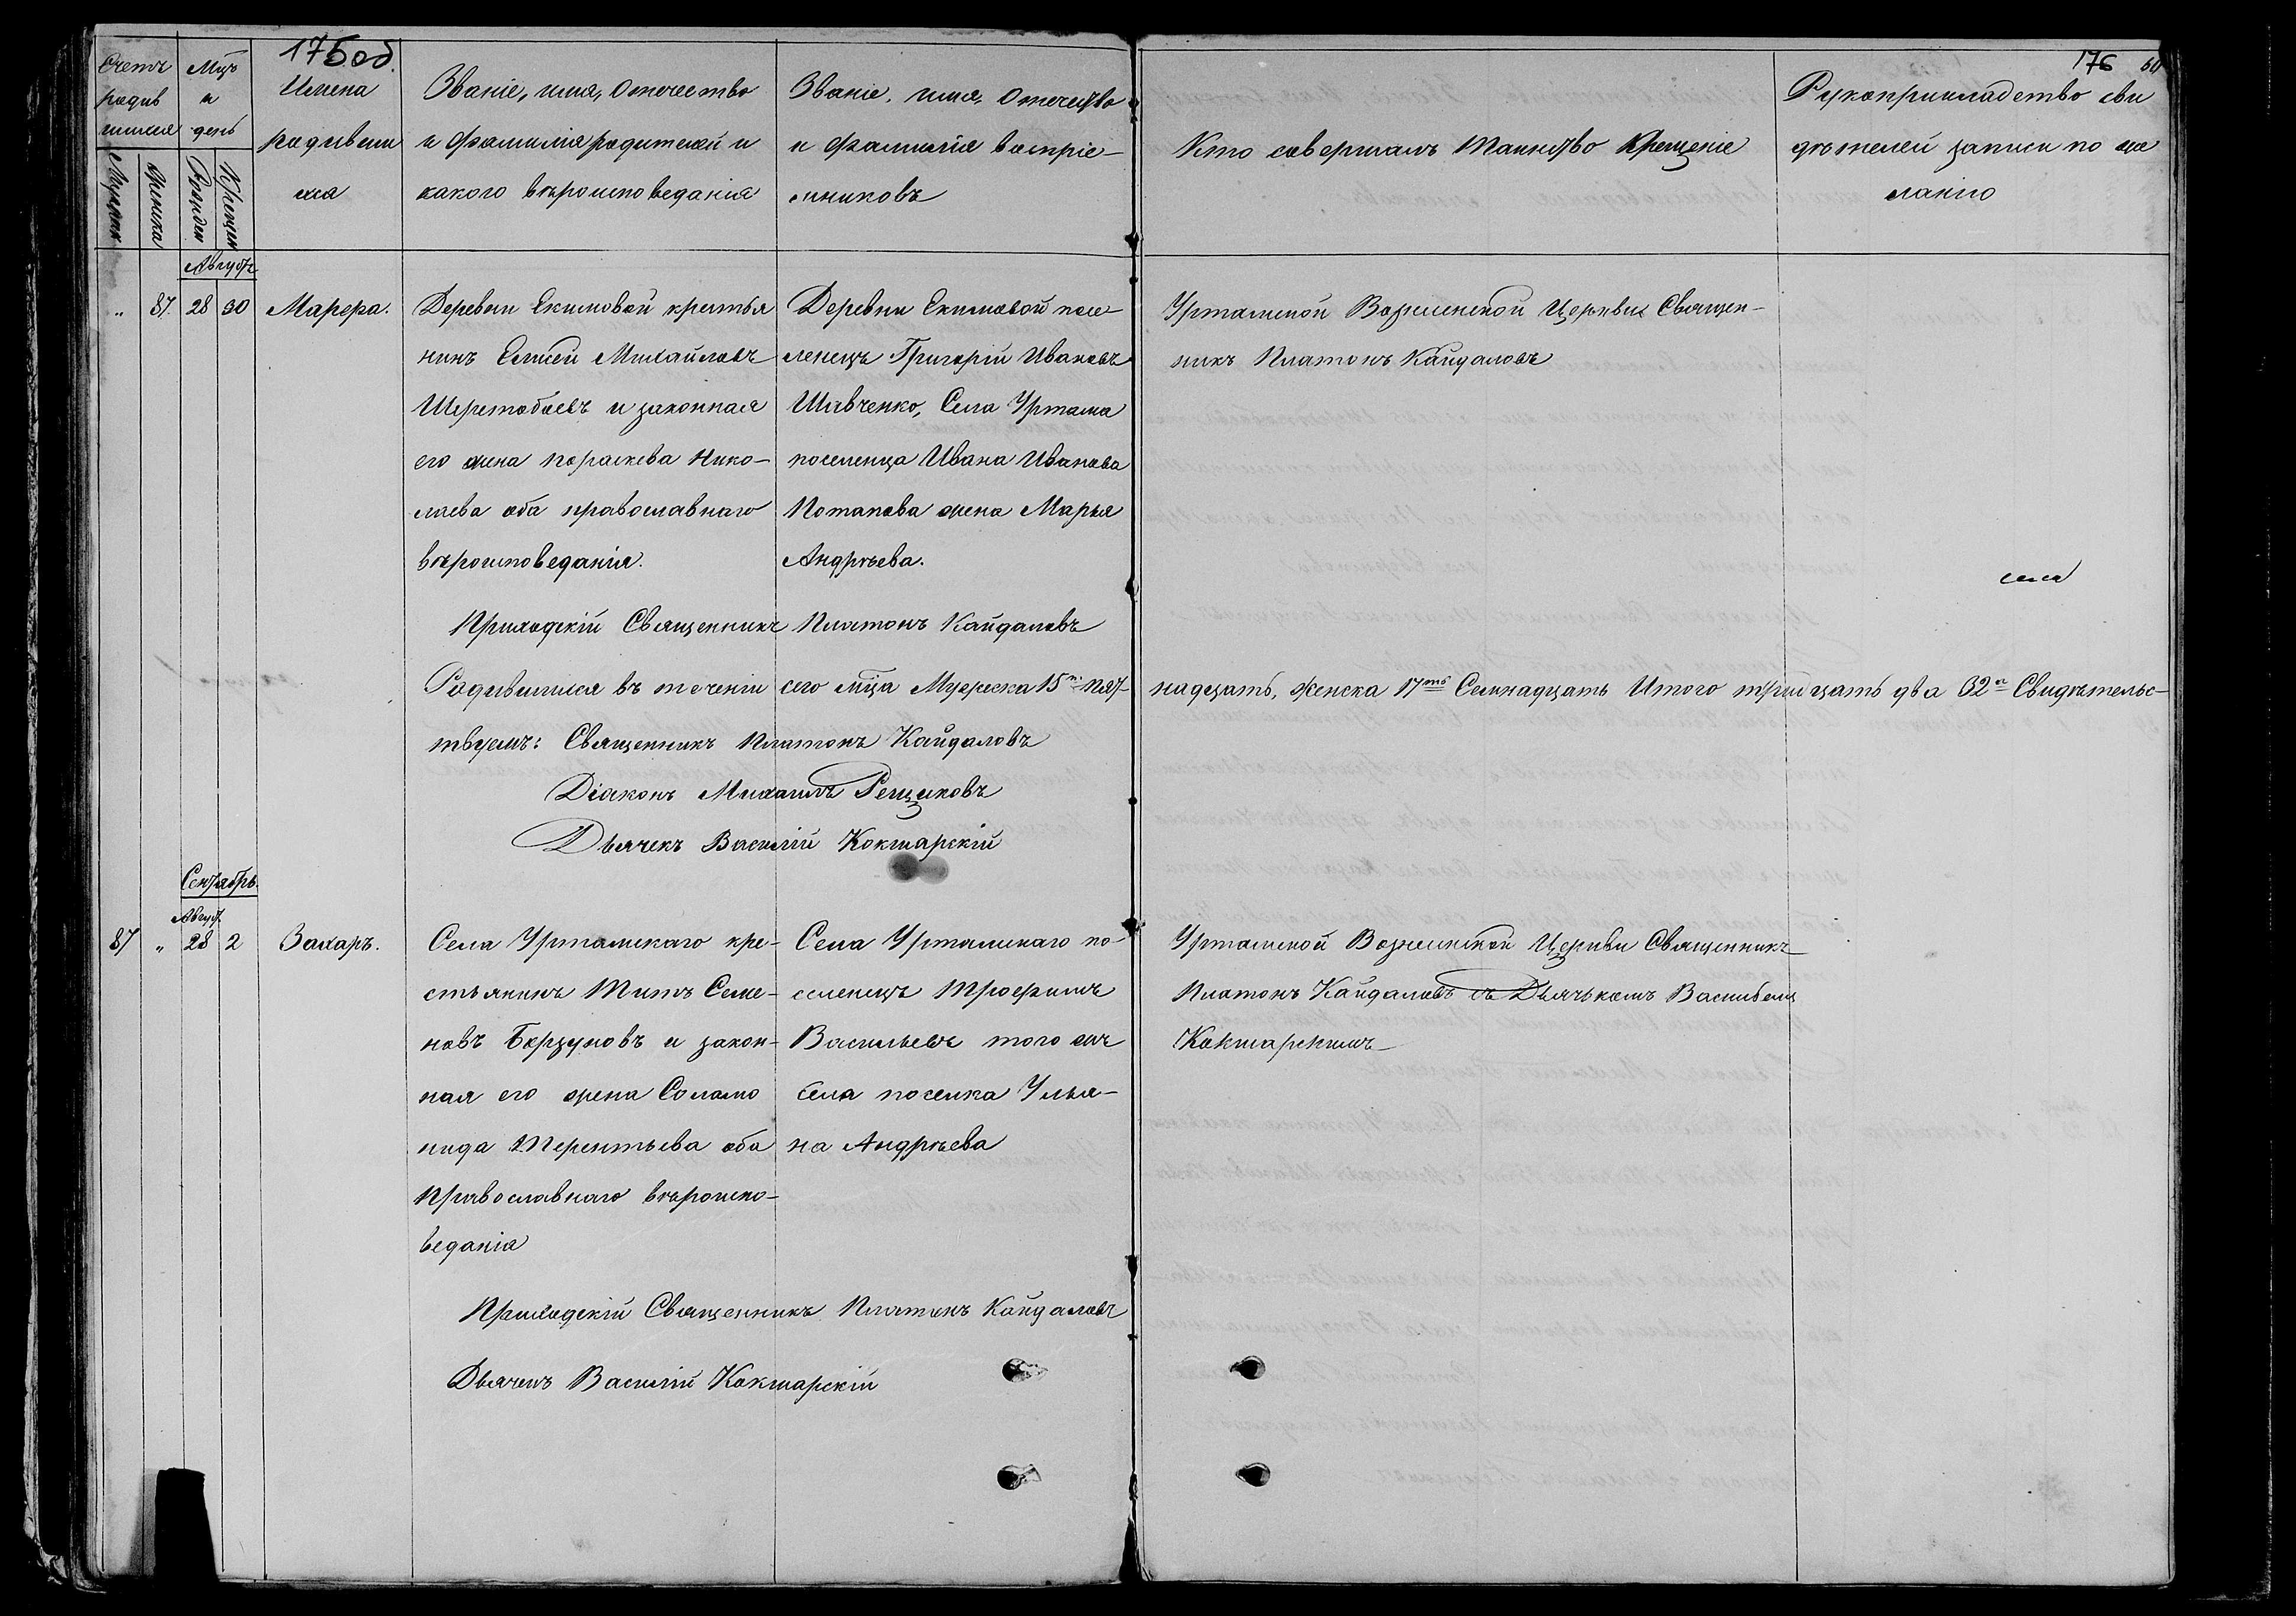 175 об.
176
60
Счетъ родив шихся
Мужеска
Женска
Мцъ и день
Рожден
Крещен
Имена родивши хся
Званіе, имя, отечество и фамилія родителей и какого вѣроисповеданія
Званіе, имя, отечество и фамилія воспріе- мниковъ
Кто совершалъ таинство крещенія
Рукоприкладство сви дѣтелей записи по же ланію
Августъ
" 87. 28 30 Марѳра.
Деревни Екимовой крестья
нинъ Елисей Михайловъ
Шеретобоевъ и законная
его жена Пораскева Нико-
лаева оба православнаго
вѣроисповеданія.
Деревни Екимовой посе-
ленецъ Григорій Ивановъ
Шивченко, Села Уртама
поселенца Ивана Иванова
Потапова жена Марья
Андрѣева.
Уртамской Вознесенской Церкви Священ-
никъ Платонъ Кайдаловъ
Приходскій Священникъ Платонъ Кайдаловъ
Родившихся въ теченіи сего мца Мужеска 15ть пят- надцать, Женска 17ть Семнадцать Итого тридцать два 32а Свидѣтельс-
твуемъ: Священникъ Платонъ Кайдаловъ
Діаконъ Михаилъ Рещиковъ
Дьячекъ Василій Кокшарскій
Сентябрь.
Август.
87 " 28 2 Захаръ.
Села Уртамскаго кре-
стьянинъ Титъ Семе-
новъ Борзуновъ и закон-
ная его жена Соломо
нида Терентьева оба
православнаго вѣроиспо-
веданія
Села Уртамскаго по-
селенецъ Трофимъ
Васильевъ того же
села поселка Улья-
на Андрѣева
Уртамской Вознесенской Церкви Священникъ
Платонъ Кайдаловъ съ Дьячькомъ Василіемъ
Кокшарскимъ
Приходскій Священникъ Платонъ Кайдаловъ
Дьячекъ Василій Кокшарскій